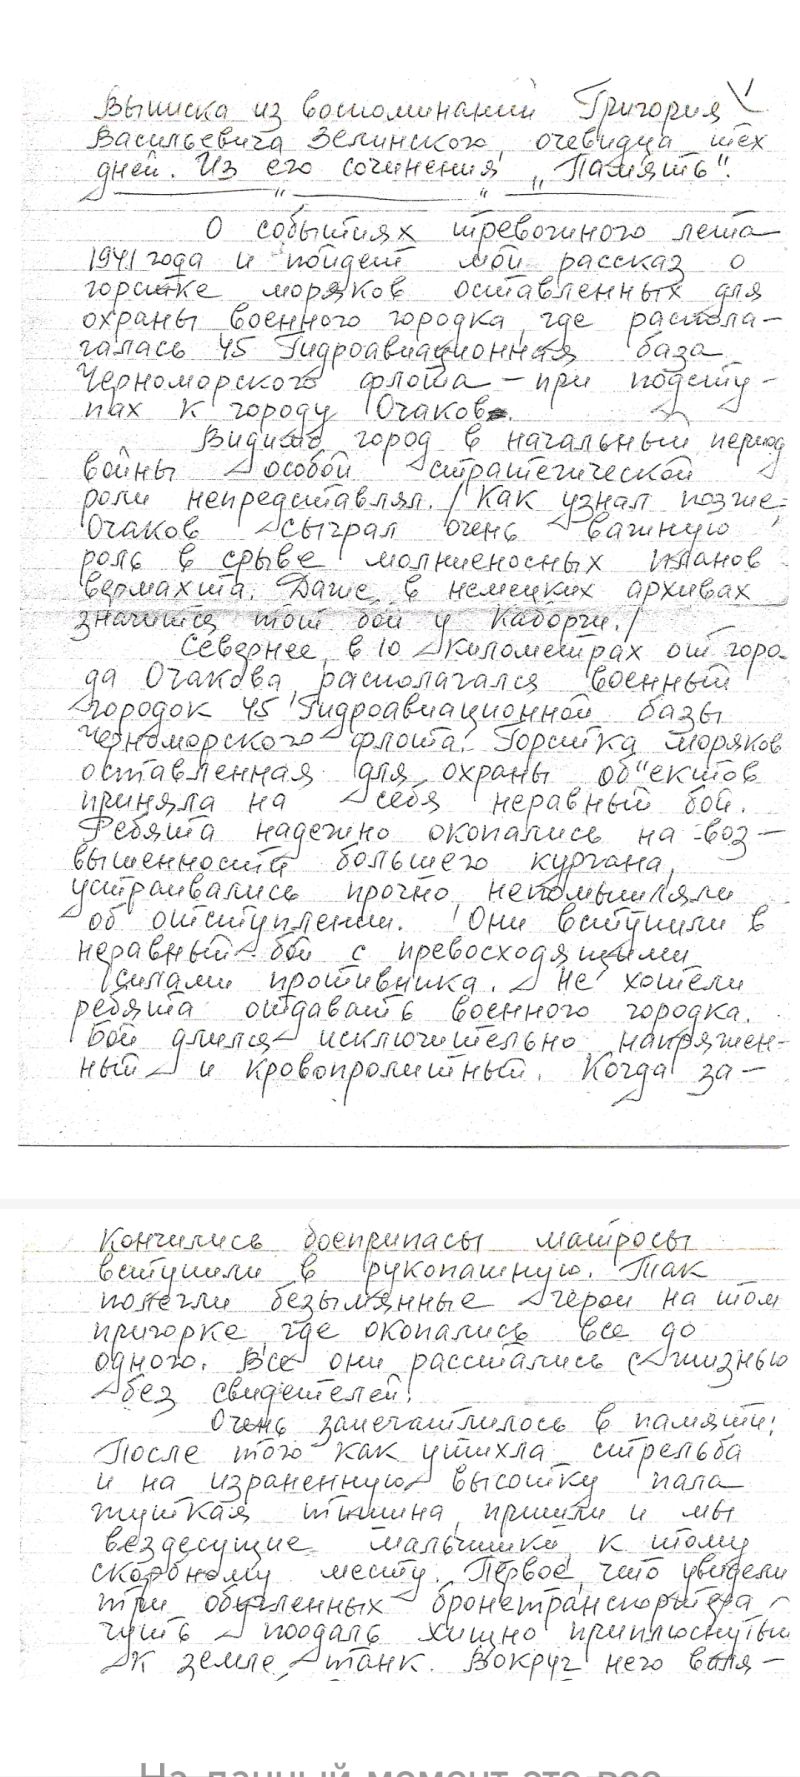 Выписка из воспоминаний Григория
Васильевича Зелинского, очевидца тех
дней. Из его сочинения „Память".
О событиях тревожного лета
1941 года и пойдет мой рассказ о
горстке моряков оставленных для
охраны военного городка, где распола-
галась 45 Гидроавиационная база
Черноморского флота – при подсту-
пах к городу Очаков.
Видимо город в начальный период
войны особой стратегической
роли непредставлял. /Как узнал позже
Очаков сыграл очень важную
роль в срыве молниеносных планов
вермахта. Даже в немецких архивах
значится тот бой у Каборги./
Севернее, в 10 километрах от горо-
да Очакова располагался военный
городок 45 Гидроавиационной базы
Черноморского флота. Горстка моряков
оставленная для охраны об"ектов
приняла на себя неравный бой.
Ребята надежно окопались на воз-
вышенности большего кургана,
устраивались прочно, непомышляли
об отступлении. Они вступили в
неравный бой с превосходящими
силами противника. Не хотели
ребята отдавать военного городка.
Бой длился исключительно напряжен-
ный и кровопролитный. Когда за-
кончились боеприпасы матросы
вступили в рукопашную. Так
полегли безымянные герои на том
пригорке, где окопались все до
одного. Все они расстались с жизнью
без свидетелей.
Очень запечатлилось в памяти:
После того как утихла стрельба
и на израненную высотку пала
жуткая тишина, пришли и мы
вездесущие мальчишки к тому
скорбному месту. Первое, что увидели
три обугленных бронетранспортера
чуть поодаль хищно приплюснутый
к земле танк. Вокруг него валя-